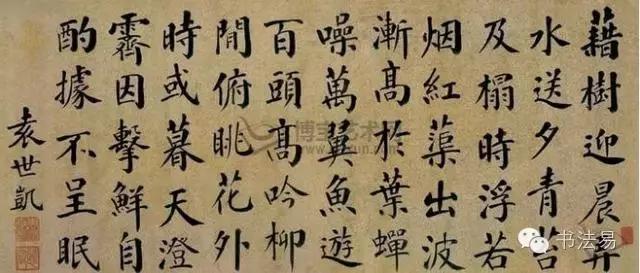 藉樹迎晨弄
水送夕青苔
及榻時浮若
烟紅蕖出波
漸高於葉蟬
噪萬翼魚遊
百頭高吟柳
閒俯眺花外
時或暮天澄
霽因擊鮮自
酌據不呈眠
袁世凱
博宝艺术网
书法易